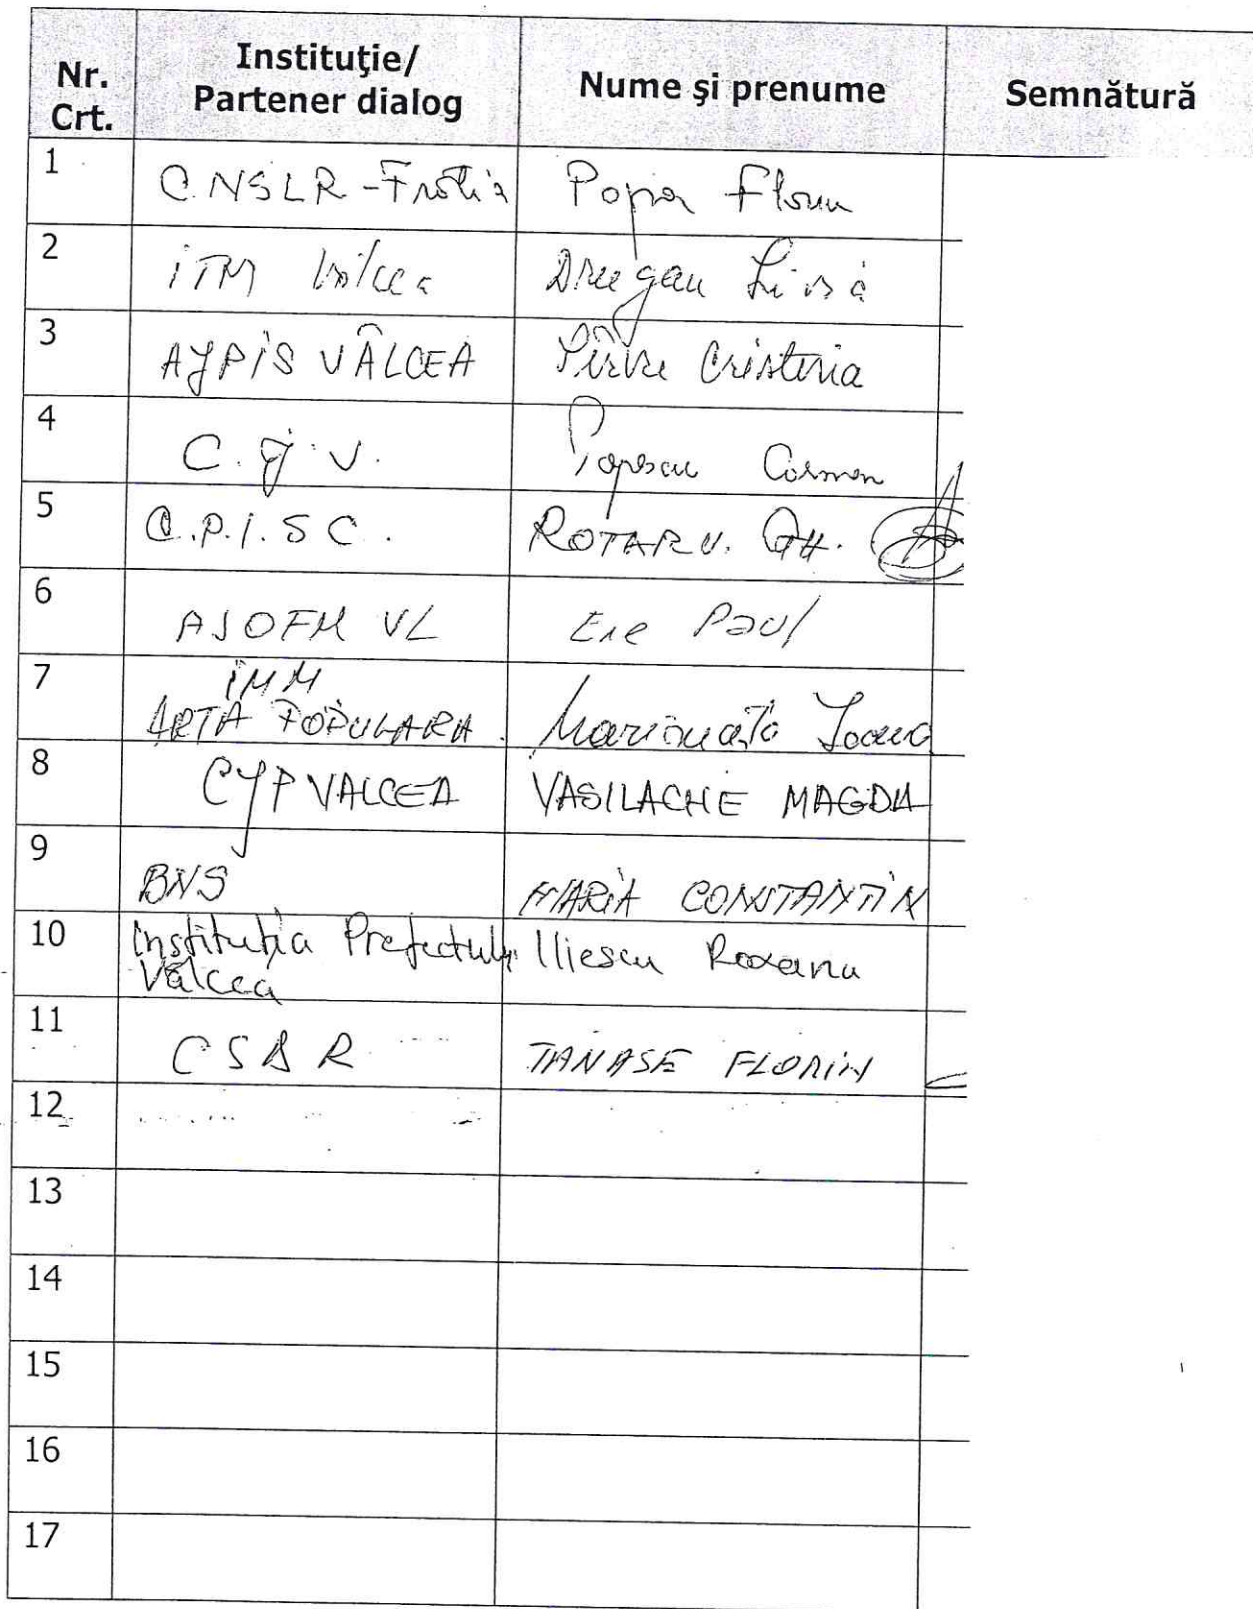 Nr. Crt. Instituţie/ Partener dialog Nume şi prenume Semnătură
1 C.NSLR-Frăția Popa Florin
2 ITM Vâlcea Drăgan Livia
3 AJPIS VÂLCEA Pîrvu Cristina
4 C.J.V. Popescu Carmen
5 C.P.I.SC. ROTARU. GH.
6 AJOFM VL Ene Paul
7 IMM
ARTA POPULARA Ioana
8 CJP VALCEA VASILACHE MAGDA
9 BNS MARIA CONSTANTIN
10 Instituția Prefectului Iliescu Roxana
Vâlcea
11 CSDR TANASE FLORIN
12
13
14
15
16
17